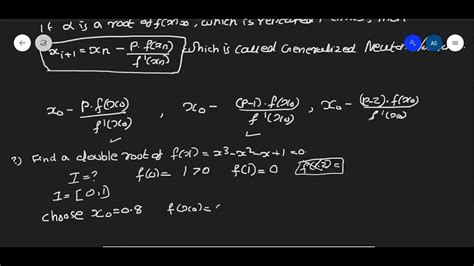 If α is a root of f(x)=0, which is repeated P times, then
x_{i+1} = x_n - P.f(x_n)/f'(x_n) which is called Generalized Newton
AS
x_0 - P.f(x_0)/f'(x_0) , x_0 - (P-1).f(x_0)/f'(x_0) , x_0 - (P-2).f(x_0)/f'(x_0)
?) Find a double root of f(x) = x^3-x^2-x+1=0
I=? f(0)= 1>0 f(1)= 0
I= [0,1]
choose x_0=0.8 f(x_0)=